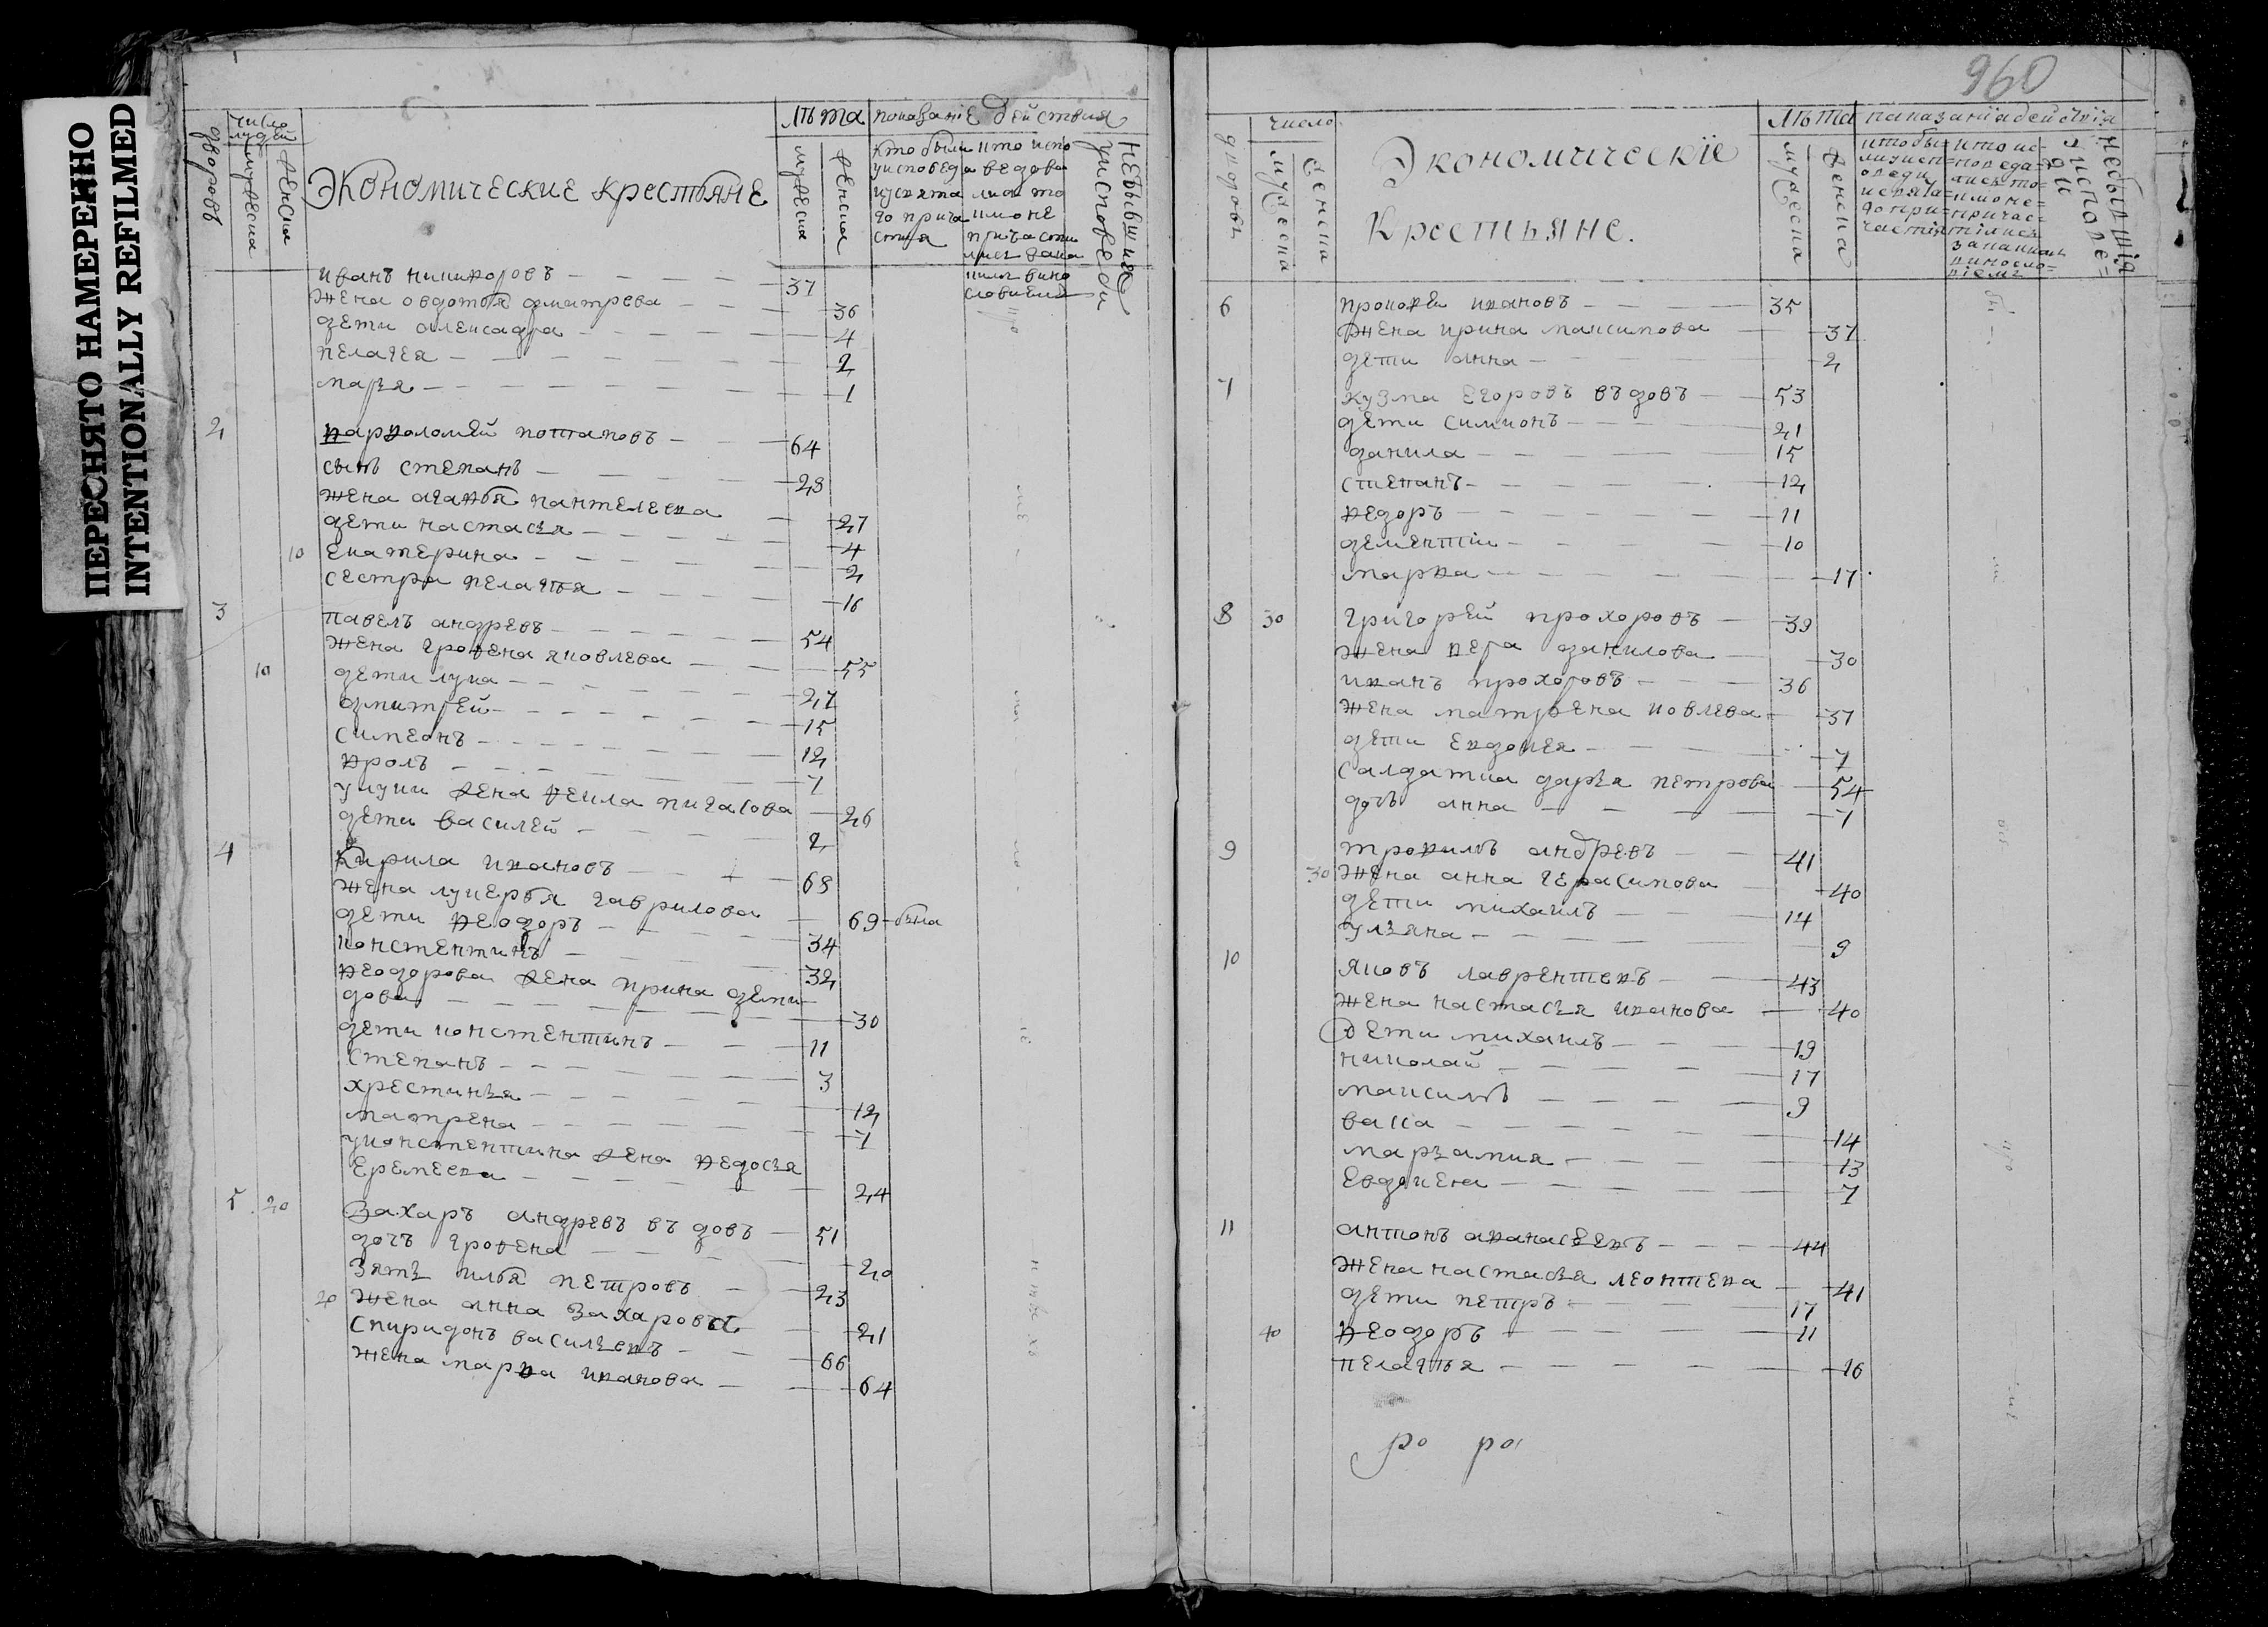 ПЕРЕСНЯТО НАМЕРЕННО
INTENTIONALLY REFILMED
дворовъ
число людей
мужеска
женска
Экономические крестьяне
лѣта
мужеска
женска
показание действия
небывшия у исповеди
Иванъ никифоровъ 37
жена овдотья дмитрева 36
дети алексадра 4
пелагея 2
марья 1
2 варфоломей потаповъ 64
сынъ степанъ 28
жена агафья пантелеева 27
дети настасья 4
10 екатерина 2
сестра пелагѣя 16
3 павелъ андревъ 54
жена графена яковлева 55
10 дети лука 27
дмитрей 15
симеонъ 12
фролъ 7
у луки жена фекла пигасова 26
дети василей 2
4 Кирила ивановъ 68
жена лукерья гаврилова 69 была
дети феодоръ 34
констентинъ 32
феодорова жена ирина деми
дова 30
дети констентинъ 11
степанъ 3
хрестинья 12
матрена 7
у констентина жена федосья
еремеева 24
5 20 Захаръ андревъ въдовъ 51
дочь графена 20
зять илья петровъ 23
20 жена анна захарова 21
спиридонъ васильевъ 66
жена марфа иванова 64
960
дворовъ
число
мужеска
женска
Экономическіе
Крестьяне.
лѣта
мужеска
женска
паказаніа действія
небывшія у исповеди
6 прокофеи ивановъ 35
жена ирина максимова 37
дети анна 2
7 кузма егоровъ въдовъ 53
дети симионъ 21
данила 15
степанъ 12
федоръ 11
дементіи 10
марфа 17
8 30 григорей прохоровъ 39
жена вера данилова 30
иванъ прохоровъ 36
жена матрена иовлева 37
дети евдокея 7
салдатка дарья петрова 54
дочь анна 7
9 трофимъ андревъ 41
30 жена анна герасимова 40
дети михаилъ 14
ульяна 9
10 яковъ лаврентевъ 43
жена настасья иванова 40
дети михаилъ 19
николай 17
максимъ 9
васса 14
марьамия 13
евдокена 7
11 антонъ афанасеевъ 44
жена настасья леонтева 41
дети петръ 17
40 феодоръ 11
пелагѣя 16
ро ро